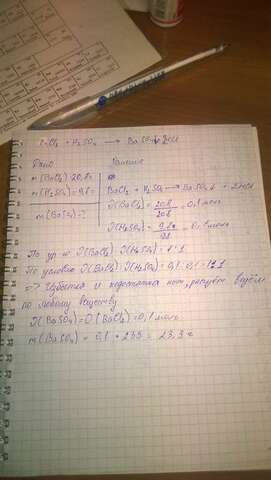 BaCl2 + H2SO4 → BaSO4↓ + 2HCl
Дано
Решение
m(BaCl2) = 20,8г
m(H2SO4) = 9,8г
BaCl2 + H2SO4 → BaSO4↓ + 2HCl
m(BaSO4) - ?
n(BaCl2) = 20,8 / 208 = 0,1 моль
n(H2SO4) = 9,8г / 98 = 0,1 моль
По ур-ю n(BaCl2) : n(H2SO4) = 1:1
По условию n(BaCl2) : n(H2SO4) = 0,1 : 0,1 = 1:1
=> Избытка и недостатка нет, расчёт ведём
по любому веществу
n(BaSO4) = n(BaCl2) = 0,1 моль
m(BaSO4) = 0,1 * 233 = 23,3 г